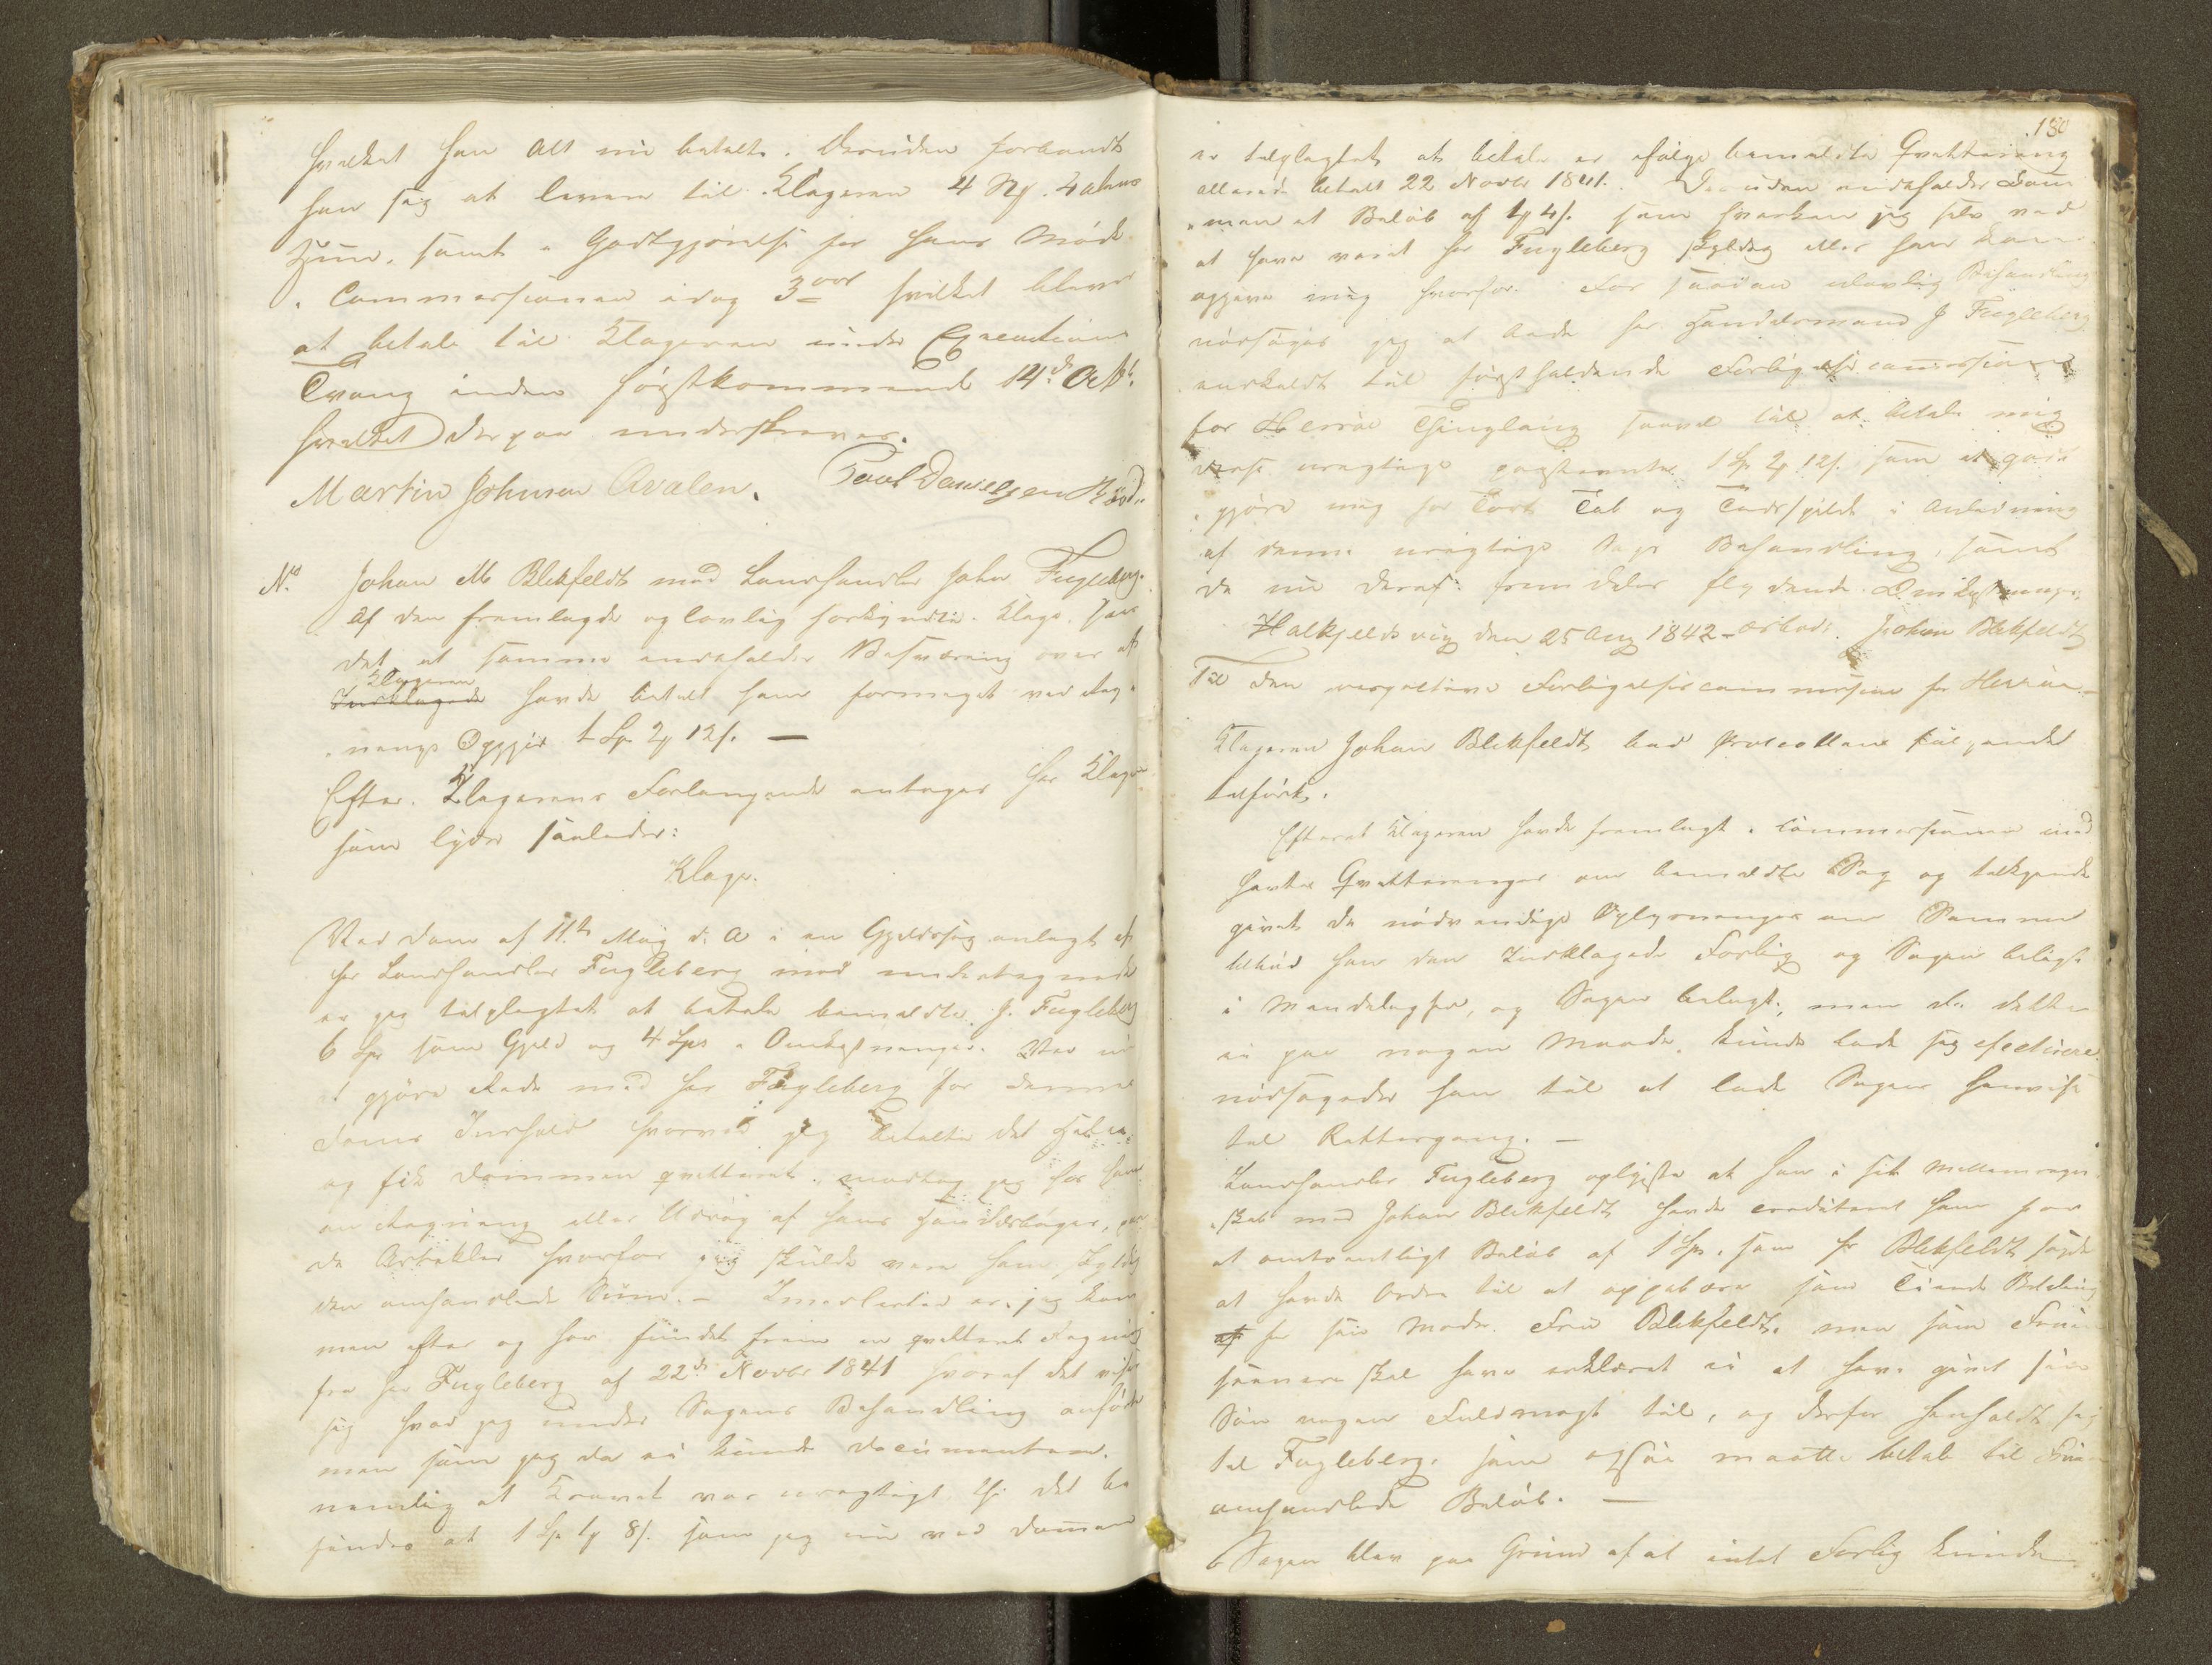 hvilket han alt nu betalte. Desuden forbandt
han sig at levere til Klageren 4
samt i Godtgjørelse for hans Møde
i Commissionen idag 3 ort hvilket bliver
at betale til Klageren under Executions
Tvang inden førstkommende 14de Octbr.
hvilket derpaa underskreves.
Martin Johnsen Avalen. Povel Danielsen
No. Johan M Blekfeldt mod Landhandler John Fugleberg.
Af den fremlagde og lovlig forkyndte Klage saaes
det at samme indeholder Besværing over at
Klageren
Indklagede havde betalt ham formeget ved Reg-
nings Opgjør 1 Sp 2 # 12 s. —
Efter Klagerens Forlangende indtages her Klagen
som lyder saaledes:
Klage.
Ved Dom af 11te Maij d. A. i en Gjeldssag anlagt af
Hr Landhandler Fugleberg mod undertegnede
er jeg tilpligtet at betale bemældte J. Fugleberg
6 Spd som Gjeld og 4 Spd i Omkostninger. Ved nu
at gjøre Rede med Hr Fugleberg for denne
Doms Indhold hvorved jeg betalte det
og fik Dommen qvitteret, modtog jeg hos ham
en Regning eller Udtog af hans Handelsbøger, paa
de Artikler hvorfor jeg skulde være ham skyldig
den omhandlede Sum. – Imidlertid er jeg kom
men efter og har fundet frem en qvitteret Regning
fra Hr Fugleberg af 22de Novbr 1841 hvoraf det viser
sig hvad jeg under Sagens Behandling anførte
men som jeg da ei kunde documentere,
nemlig at Kravet var urigtigt thi det be
findes at 1 Sp 1 # 8 s. som jeg nu ved Dommen
180
er tilpligtet at betale er ifølge bemældte Qvittering
allerede betalt 22 Novbr 1841. Desuden indeholder Dom
men et Beløb af 1 # 4 s. som hverken jeg selv ved
at have været Hr Fugleberg skyldig eller han kan
opgive mig hvorfor. For saadan ulovlig Behandling
nødsages jeg at bede Hr Handelsmand J Fugleberg
indkaldt til førstholdende Forligelsescommission
for Herröe Thinglaug saavel til at betale mig
disse urigtige paastævnte 1 Sp 2 # 12 s. som at godt
gjøre mig for Tort Tab og Tidsspilde i Anledning
af denne urigtige Sags Behandling, samt
de nu deraf fremdeles flydende Omkostninger.
Halkjeldsvig den 25 Aug 1842 – ærbødt. Johan Blekfeldt
Til den respective Forligelsescommission for Herröe. –
Klageren Johan Blekfeldt bad Protocollen følgende
tilført.
Efterat Klageren havde fremlagt i Commissionen med
havte Qvitteringer om bemældte Sag og tilkjende
givet de nødvendige Oplysninger om Samme
tilbød han den Indklagede Forlig og Sagen bilagt
i Mindelighed, og Sagen bilagt, men da dette
ei paa nogen Maade kunde lade sig efectuere
nødsagedes han til at lade Sagen henvise
til Rettergang. –
Landhandler Fugleberg oplyste at han i sit Mellemregn
skab med Johan Blekfeldt havde crediteret ham for
et omtrentligt Beløb af 1 Spd. som Hr Blekfeldt sagde
at havde Ordre til at oppebære som Tiende Betaling
af for sin Moder Frue Blekfeldt. men som Fruen
senere skal have erklæret ei at have givet sin
Søn nogen Fuldmagt til, og derfor henholdt sig
til Fugleberg, som ogsaa maatte betale til Fruen
omhandlede Beløb. —
Sagen blev paa Grund af at intet Forlig kunde